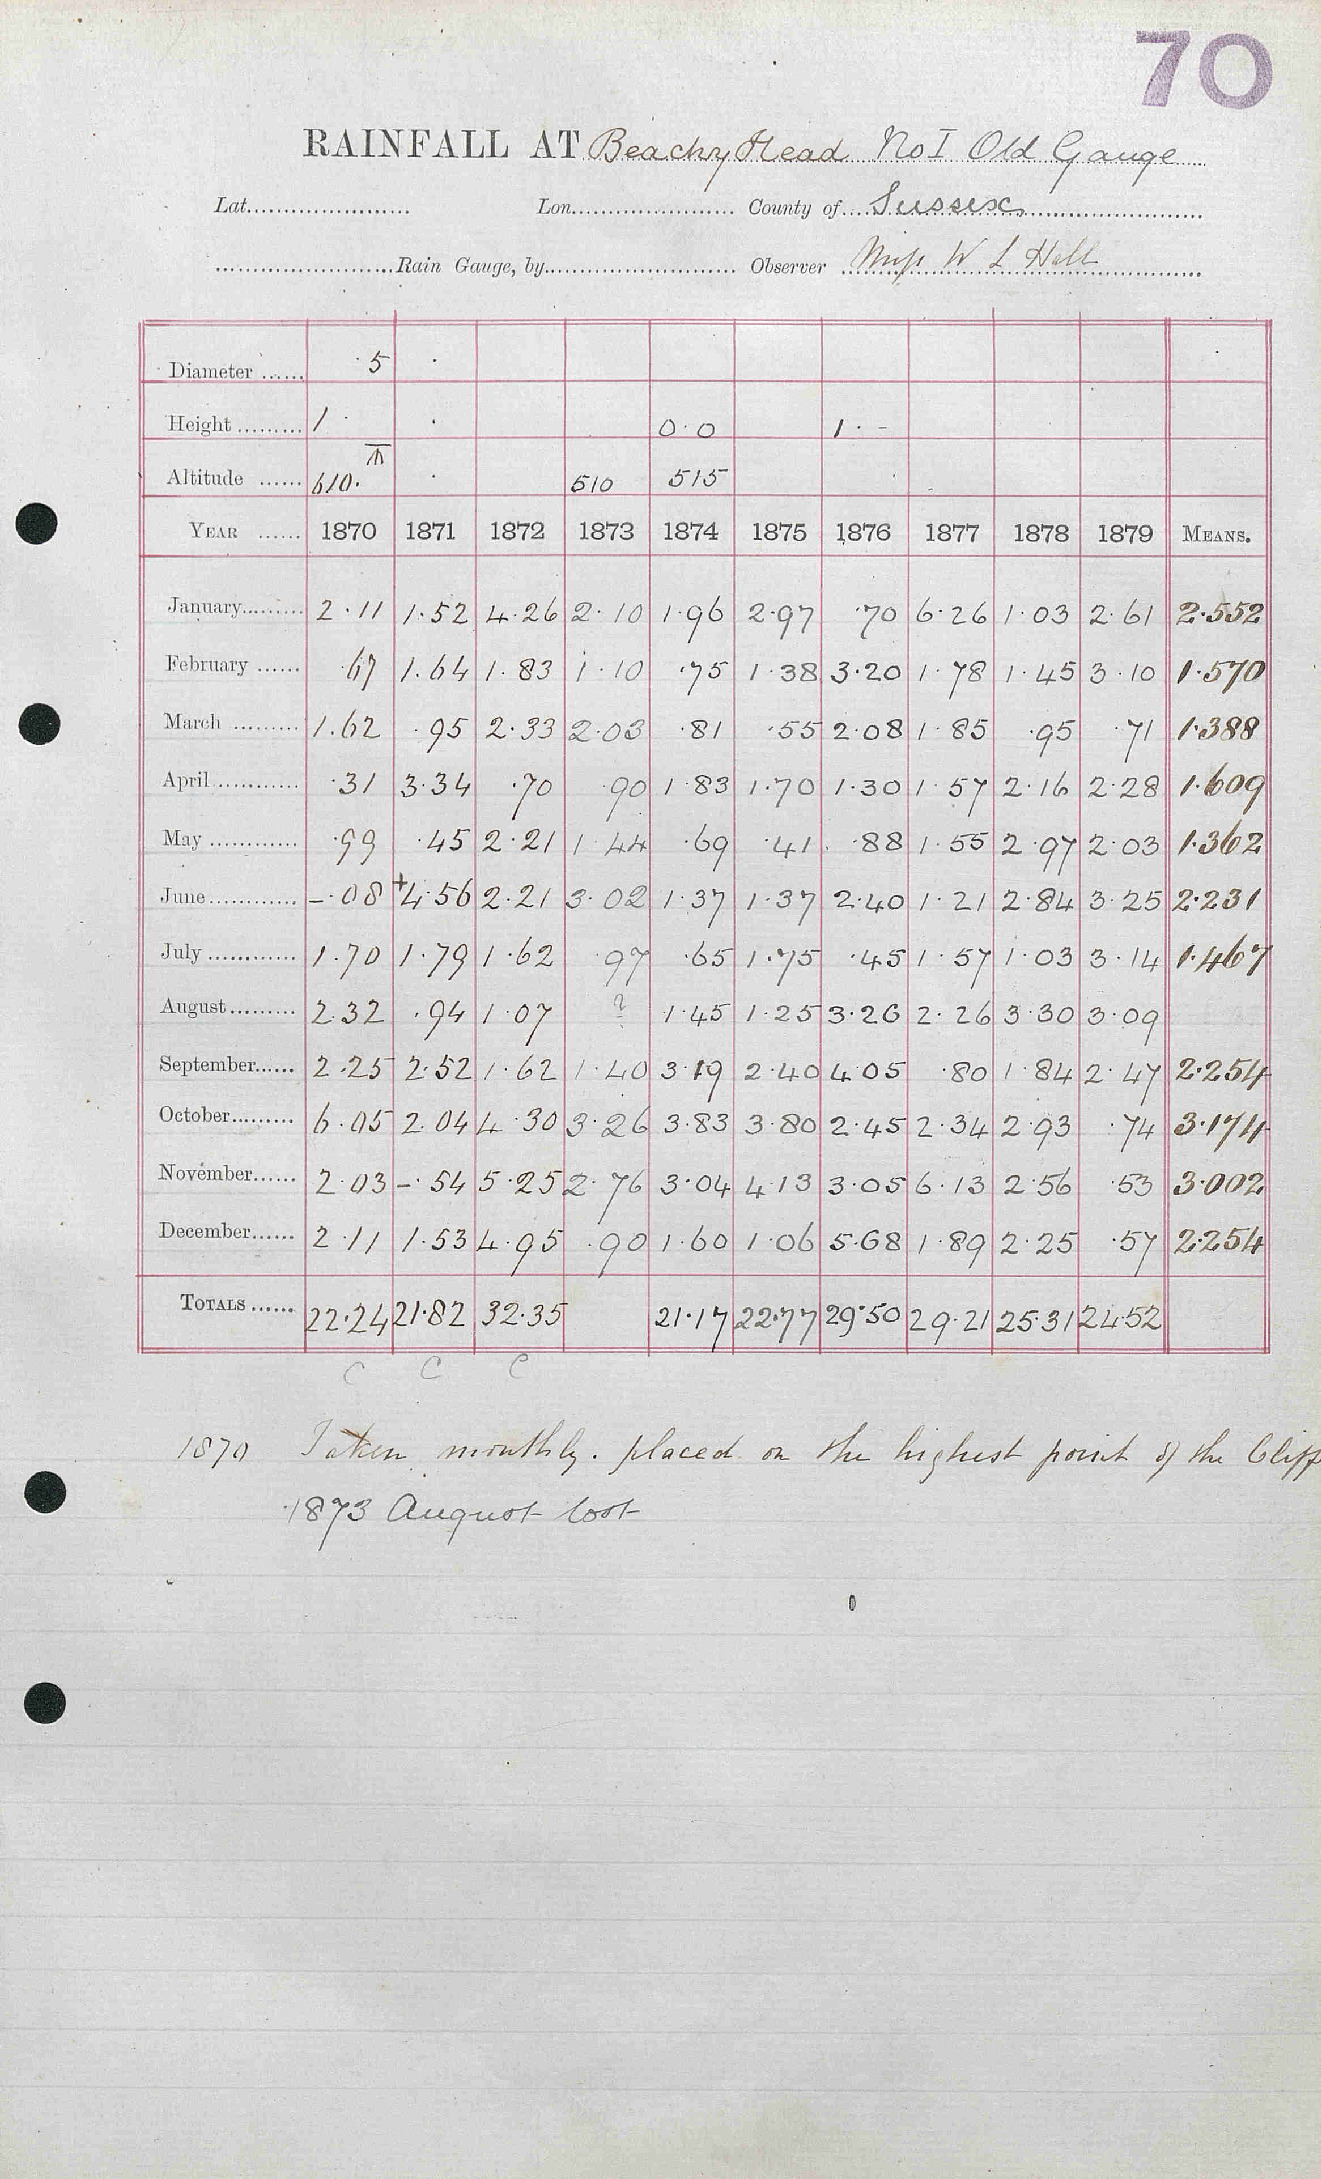 70
RAINFALL AT Beachy Head No I Old Gauge
Lat. Lon. County of Sussex
Rain Gauge, by Observer Miss W L Hall
Diameter 5
Height 1 0·0 1·-
Altitude 610· 510 515
YEAR 1870 1871 1872 1873 1874 1875 1876 1877 1878 1879 MEANS.
January 2·11 1·52 4·26 2·10 1·96 2·97 ·70 6·26 1·03 2·61 2·552
February ·67 1·64 1·83 1·10 ·75 1·38 3·20 1·78 1·45 3·10 1·570
March 1·62 ·95 2·33 2·03 ·81 ·55 2·08 1·85 ·95 ·71 1·388
April ·31 3·34 ·70 ·90 1·83 1·70 1·30 1·57 2·16 2·28 1·609
May ·99 ·45 2·21 1·44 ·69 ·41 ·88 1·55 2·97 2·03 1·362
June -·08 +4·56 2·21 3·02 1·37 1·37 2·40 1·21 2·84 3·25 2·231
July 1·70 1·79 1·62 ·97 ·65 1·75 ·45 1·57 1·03 3·14 1·467
August 2·32 ·94 1·07 ? 1·45 1·25 3·26 2·26 3·30 3·09
September 2·25 2·52 1·62 1·40 3·19 2·40 4·05 ·80 1·84 2·47 2·254
October 6·05 2·04 4·30 3·26 3·83 3·80 2·45 2·34 2·93 ·74 3·174
November 2·03 -·54 5·25 2·76 3·04 4·13 3·05 6·13 2·56 ·53 3·002
December 2·11 1·53 4·95 ·90 1·60 1·06 5·68 1·89 2·25 ·57 2·254
TOTALS 22·24 21·82 32·35 21·17 22·77 29·50 29·21 25·31 24·52
C C C
1870 Taken monthly. placed on the highest point of the Cliff
1873 August lost